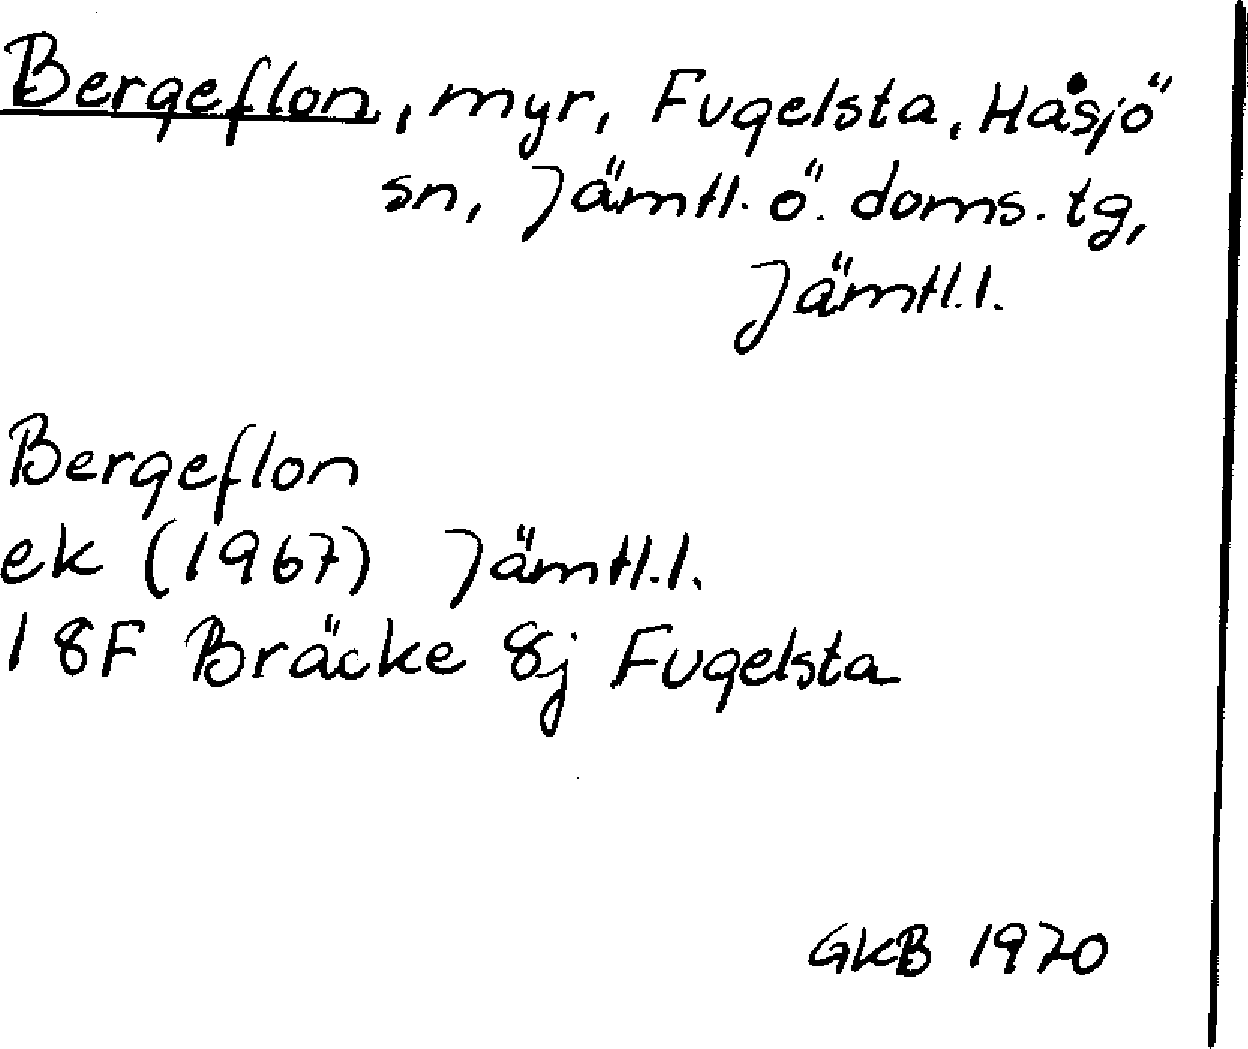 Bergeflon, myr, Fugelsta, Håsjö
sn, Jämtl. ö. doms. tg,
Jämtl.l.
Bergeflon
ek (1967) Jämtl.l.
18F Bräcke 8j Fugelsta
GKB 1970